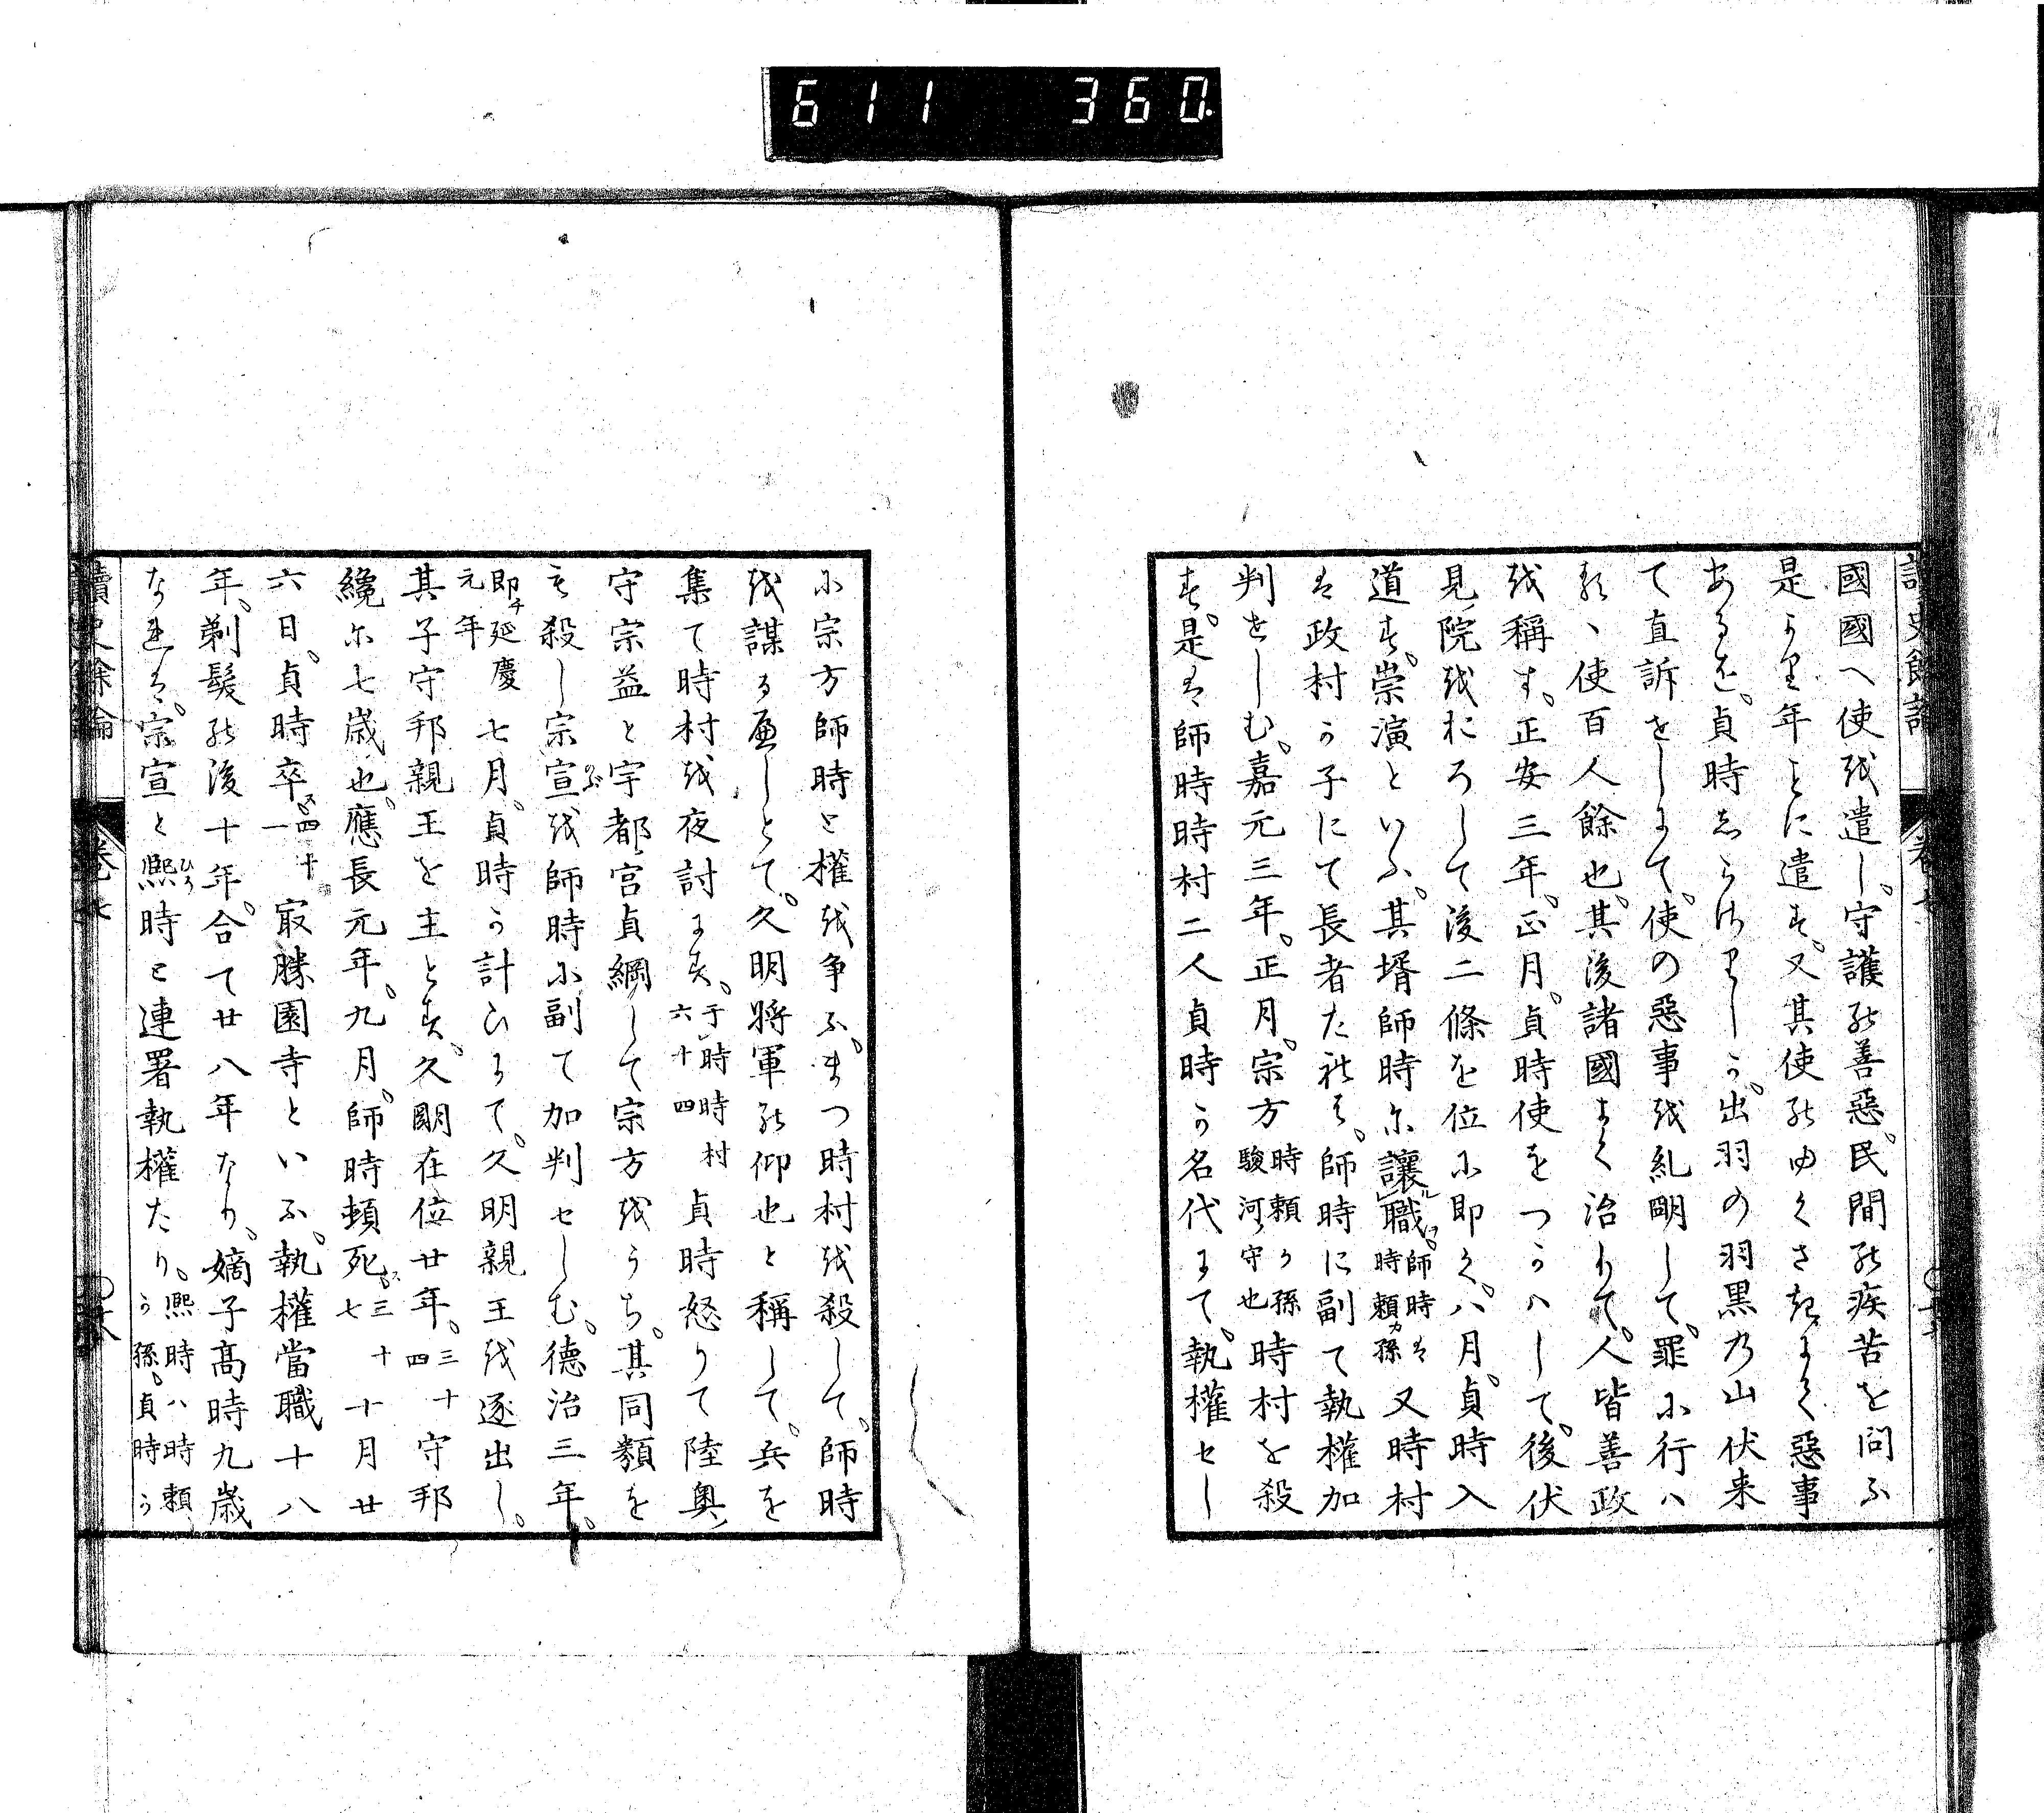 611 360.
國國へ使を遣し。守護の善惡。民間の疾苦を問ふ
是より年ことに遣す。又其使のゆくさきよく惡事
あるを。貞時しらさりしか。出羽の羽黒の山伏来
て直訴をしよて。使の惡事を糺明して。罪に行ハ
る、使百人餘也。其後諸國よく治りて。人皆善政
を稱す。正安三年。正月。貞時使をつかハして。後伏
見院をおろして後二條を位に即く。八月。貞時入
道す。崇演といふ。其壻師時に讓職。師時は時頼カ孫又時村
は政村か子にて長者たれは。師時に副て執權加
判せしむ。嘉元三年。正月。宗方時頼か孫駿河守也時村を殺
す。是は師時時村二人貞時か名代よて。執權セし
に宗方師時と權を争ふ。まつ時村を殺して。師時
を謀るへしとて。久明將軍の仰也と稱して。兵を
集て時村を夜討よす。于時時村六十四貞時怒りて陸奥
守宗益と宇都宮貞綱して宗方をうち。其同類を
も殺し宗宣を師時に副て加判セしむ。德治三年。
即チ延慶元年七月。貞時か計ひよて。久明親王を逐出し。
其子守邦親王を主とす。久明在位廿年。三十四守邦
纔に七歳也。應長元年。九月。師時頓死ス。三十七十月廿
六日。貞時卒ス。四十一最勝園寺といふ。執權當職十八
年。剃髮の後十年。合て廿八年なり。嫡子高時九歳
なれは。宗宣と熈ひろ時と連署執權たり。熈時ハ時頼か孫。貞時か
讀史餘論 卷七